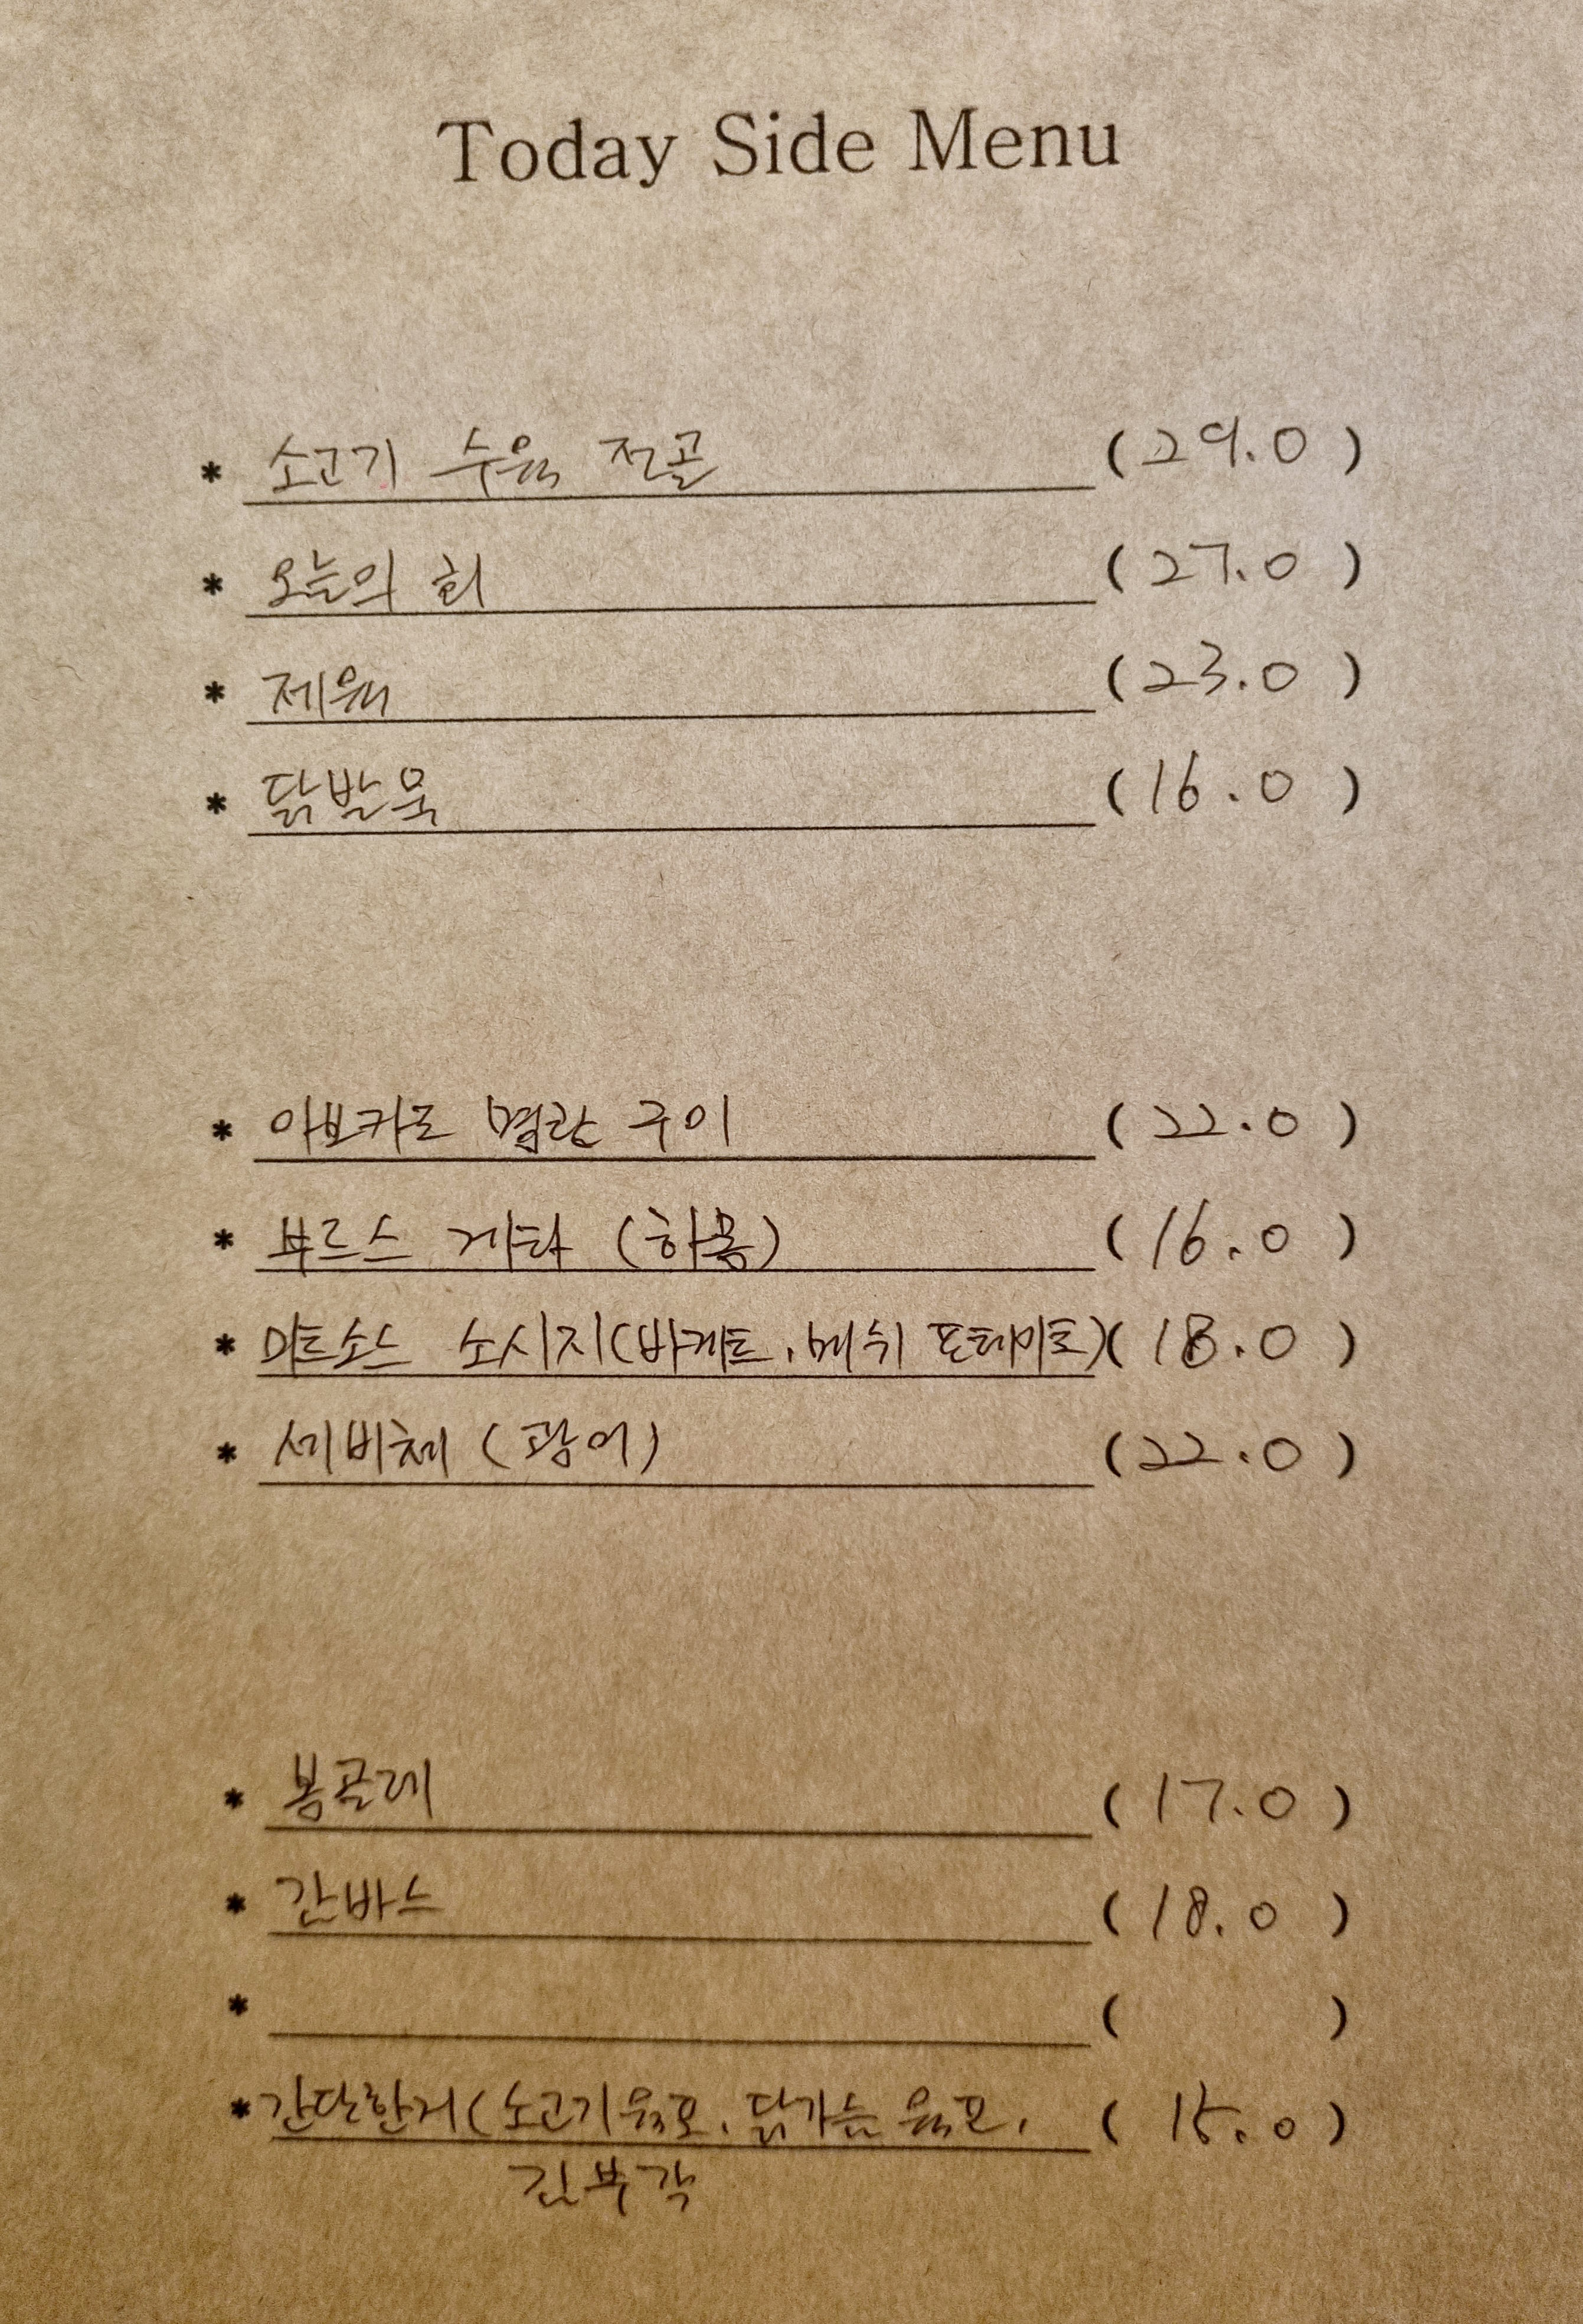 Today Side Menu
* 소고기 수육 전골 (29.0)
* 오늘의 회 (27.0)
* 제육 (23.0)
* 닭발묵 (16.0)
* 아보카도 명란 구이 (22.0)
* 부르스 게타 (하몽) (16.0)
* 미트소스 소시지(바게트, 메쉬 포테이토) (18.0)
* 세비체 (광어) (22.0)
* 봉골레 (17.0)
* 간바스 (18.0)
* ( )
* 간단한거 (소고기육포, 닭가슴육포, (15.0)
김부각